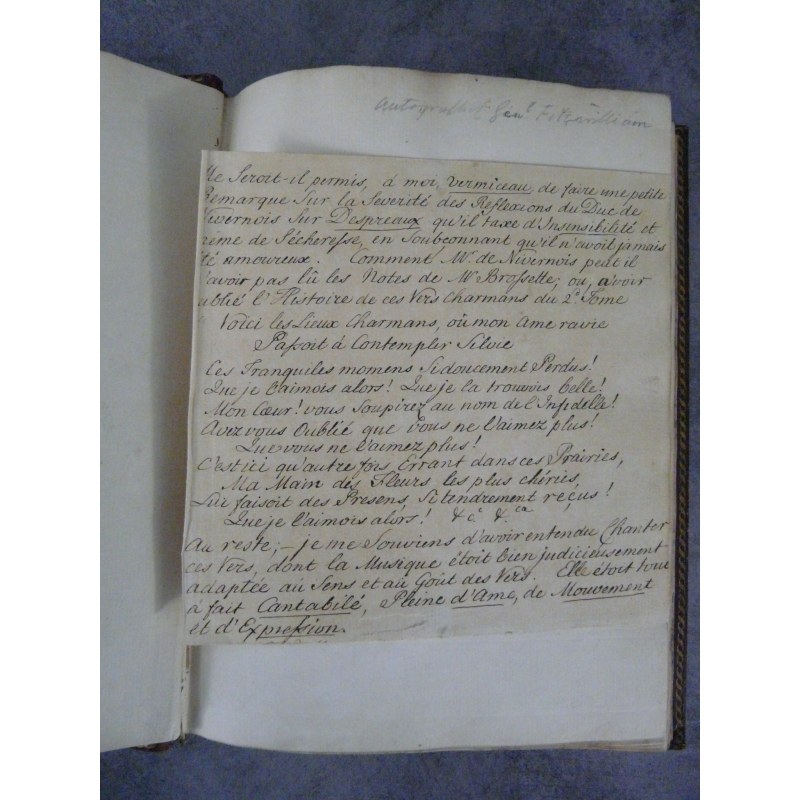 Autograph of Gen.l Fitzwilliam
Me Seroit-il permis, à moi, vermiceau, de faire une petite
Remarque Sur la Severité des Reflexions du Duc de
Nivernois Sur Despreaux qu'il taxe d'Insensibilité et
même de Sécheresse, en Soubconnant qu'il n'avoit jamais
été amoureux. Comment Mr. de Nivernois peut il
n'avoir pas lû les Notes de Mr Brossette, ou, avoir
oublié l'Histoire de ces Vers Charmans du 2d. Tome
Voici les Lieux Charmans, où mon Ame ravie
Passoit à Contempler Silvie
Ces Tranquiles momens Si doucement Perdus!
Que je l'aimois alors! Que je la trouvois belle!
Mon Cœur! vous Soupirez au nom de l'Infidelle!
Avez vous Oublié que vous ne l'aimez plus!
Que vous ne l'aimez plus!
C'est ici qu'autre fois Errant dans ces Prairies,
Ma Main des Fleurs les plus chéries,
Lui faisoit des Presens, Si tendrement reçus!
Que je l'aimois alors! &c &ca
Au reste; — je me Souviens d'avoir entendu Chanter
ces Vers, dont la Musique étoit bien judicieusement
adaptée au Sens et au Goût des Vers. Elle étoit tout
à fait Cantabilé, Pleine d'Ame, de Mouvement
et d'Expression.